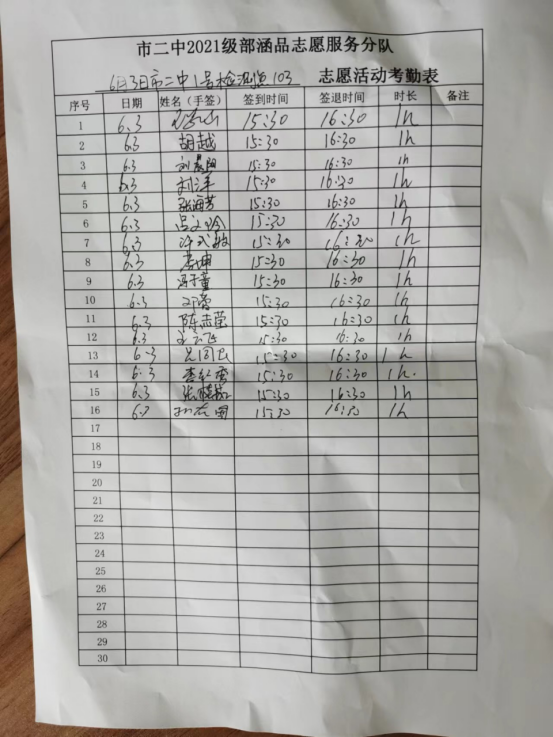 市二中2021级部涵品志愿服务分队
6月3日市二中1号检测点103 志愿活动考勤表
序号 日期 姓名（手签） 签到时间 签退时间 时长 备注
1 6.3 15:30 16:30 1h
2 6.3 胡越 15:30 16:30 1h
3 6.3 15:30 16:30 1h
4 6.3 刘洋 15:30 16:30 1h
5 6.3 张海芳 15:30 16:30 1h
6 6.3 15:30 16:30 1h
7 6.3 15:30 16:30 1h
8 6.3 15:30 16:30 1h
9 6.3 15:30 16:30 1h
10 6.3 15:30 16:30 1h
11 6.3 陈志莹 15:30 16:30 1h
12 6.3 15:30 16:30 1h
13 6.3 15:30 16:30 1h
14 6.3 李红雷 15:30 16:30 1h.
15 6.3 15:30 16:30 1h
16 6.3 15:30 16:30 1h
17
18
19
20
21
22
23
24
25
26
27
28
29
30